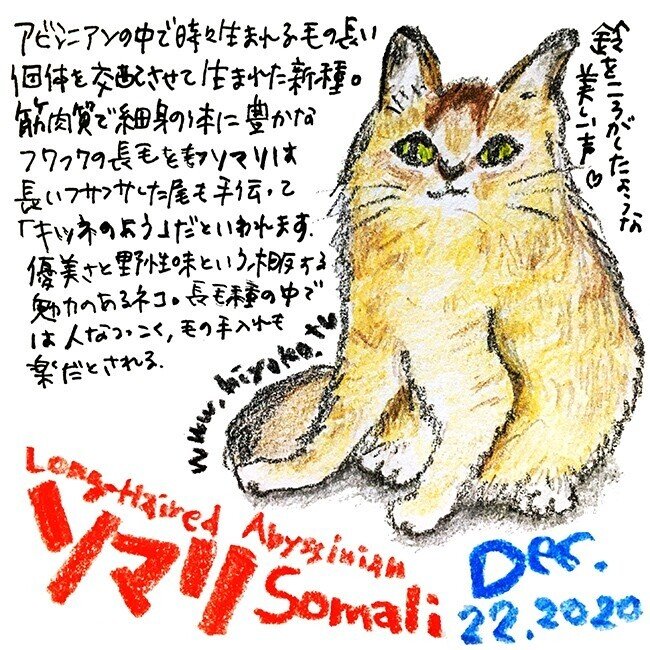 アビシニアンの中で時々生まれる毛の長い
個体を交配させて生まれた新種。
筋肉質で細身の体に豊かな
フワフワの長毛を持つソマリは
長いフサフサした尾も手伝って
「キツネのよう」だといわれます.
優美さと野性味という相反する
魅力のあるネコ。長毛種の中で
は人なつっこく,毛の手入れも
楽だとされる.
鈴をころがしたような
美しい声♡
www.hiyoko.tv
Long-Haired Abyssinian
ソマリ Somali
Dec.
22.2020